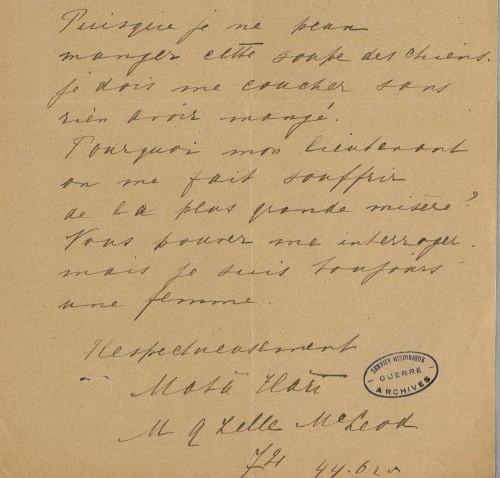 Puisque je ne peux
manger cette soupe des chiens.
je dois me coucher sans
rien avoir mangé.
Pourquoi mon lieutenant
on me fait souffrir
de la plus grande misère?
Vous pouvez me interroger.
mais je suis toujours
une femme.
Respectueusement
Mata Hari
M G Zelle McLeod
SERVICE HISTORIQUE
GUERRE
ARCHIVES